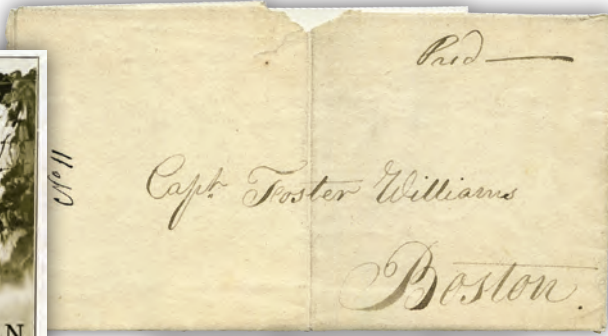 Paid
No 11
Capt. Foster Williams
Boston.
N